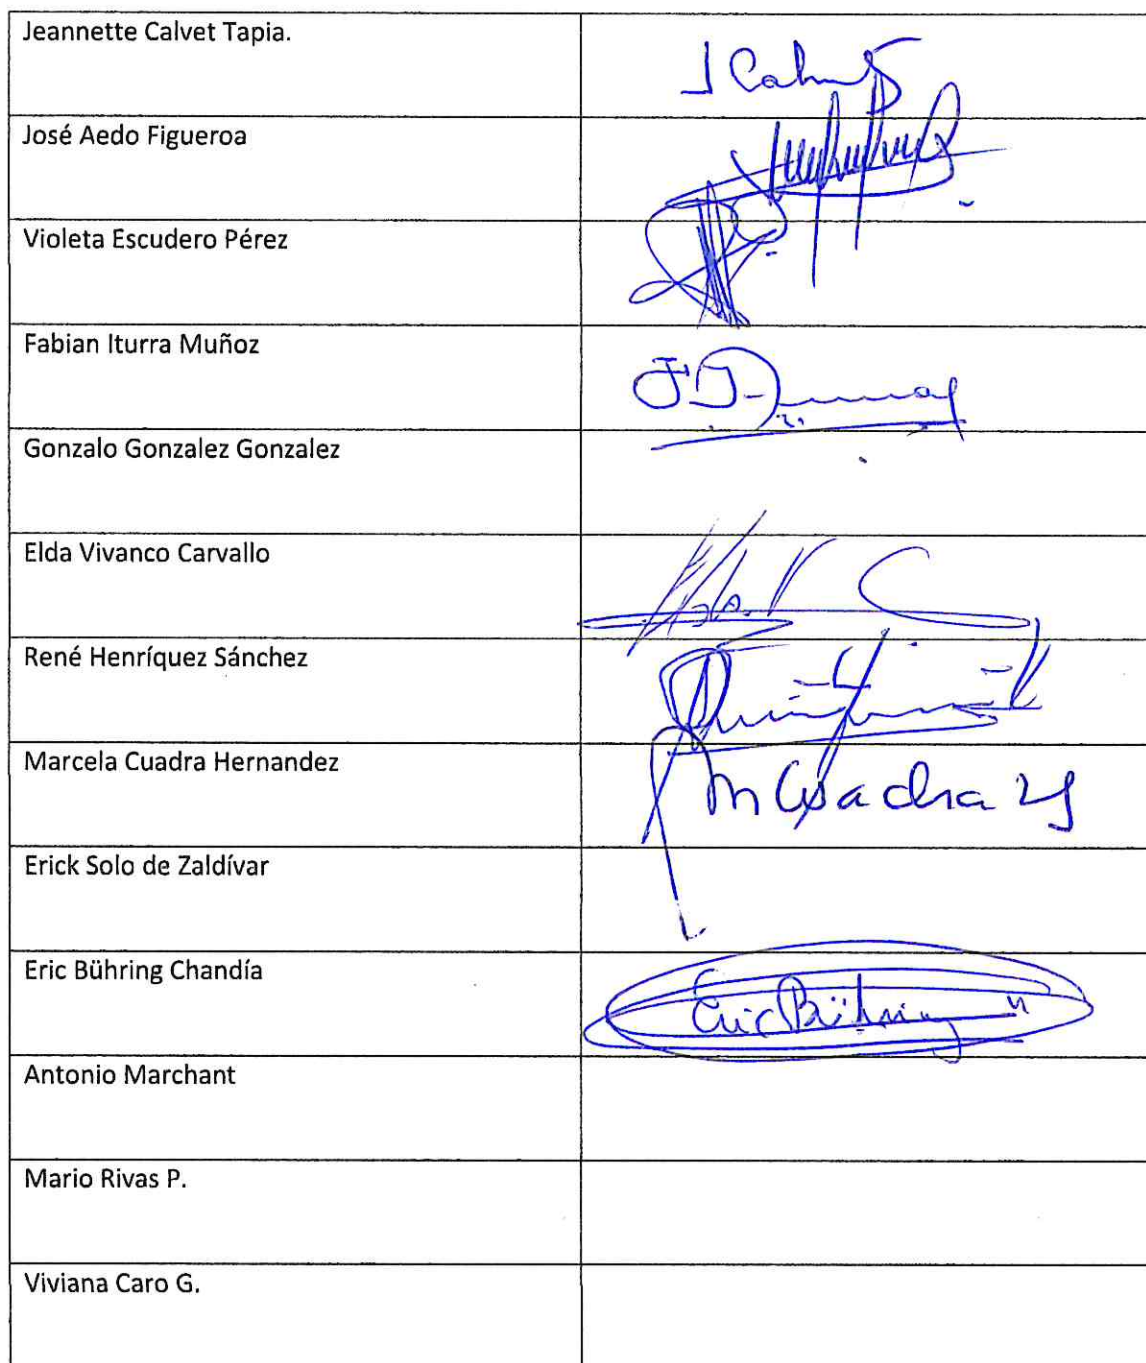 Jeannette Calvet Tapia.
J Calvet
José Aedo Figueroa
Violeta Escudero Pérez
Fabian Iturra Muñoz
Gonzalo Gonzalez Gonzalez
Elda Vivanco Carvallo
René Henríquez Sánchez
Marcela Cuadra Hernandez
M Cuadra H
Erick Solo de Zaldívar
Eric Bühring Chandía
Eric Bühring
Antonio Marchant
Mario Rivas P.
Viviana Caro G.